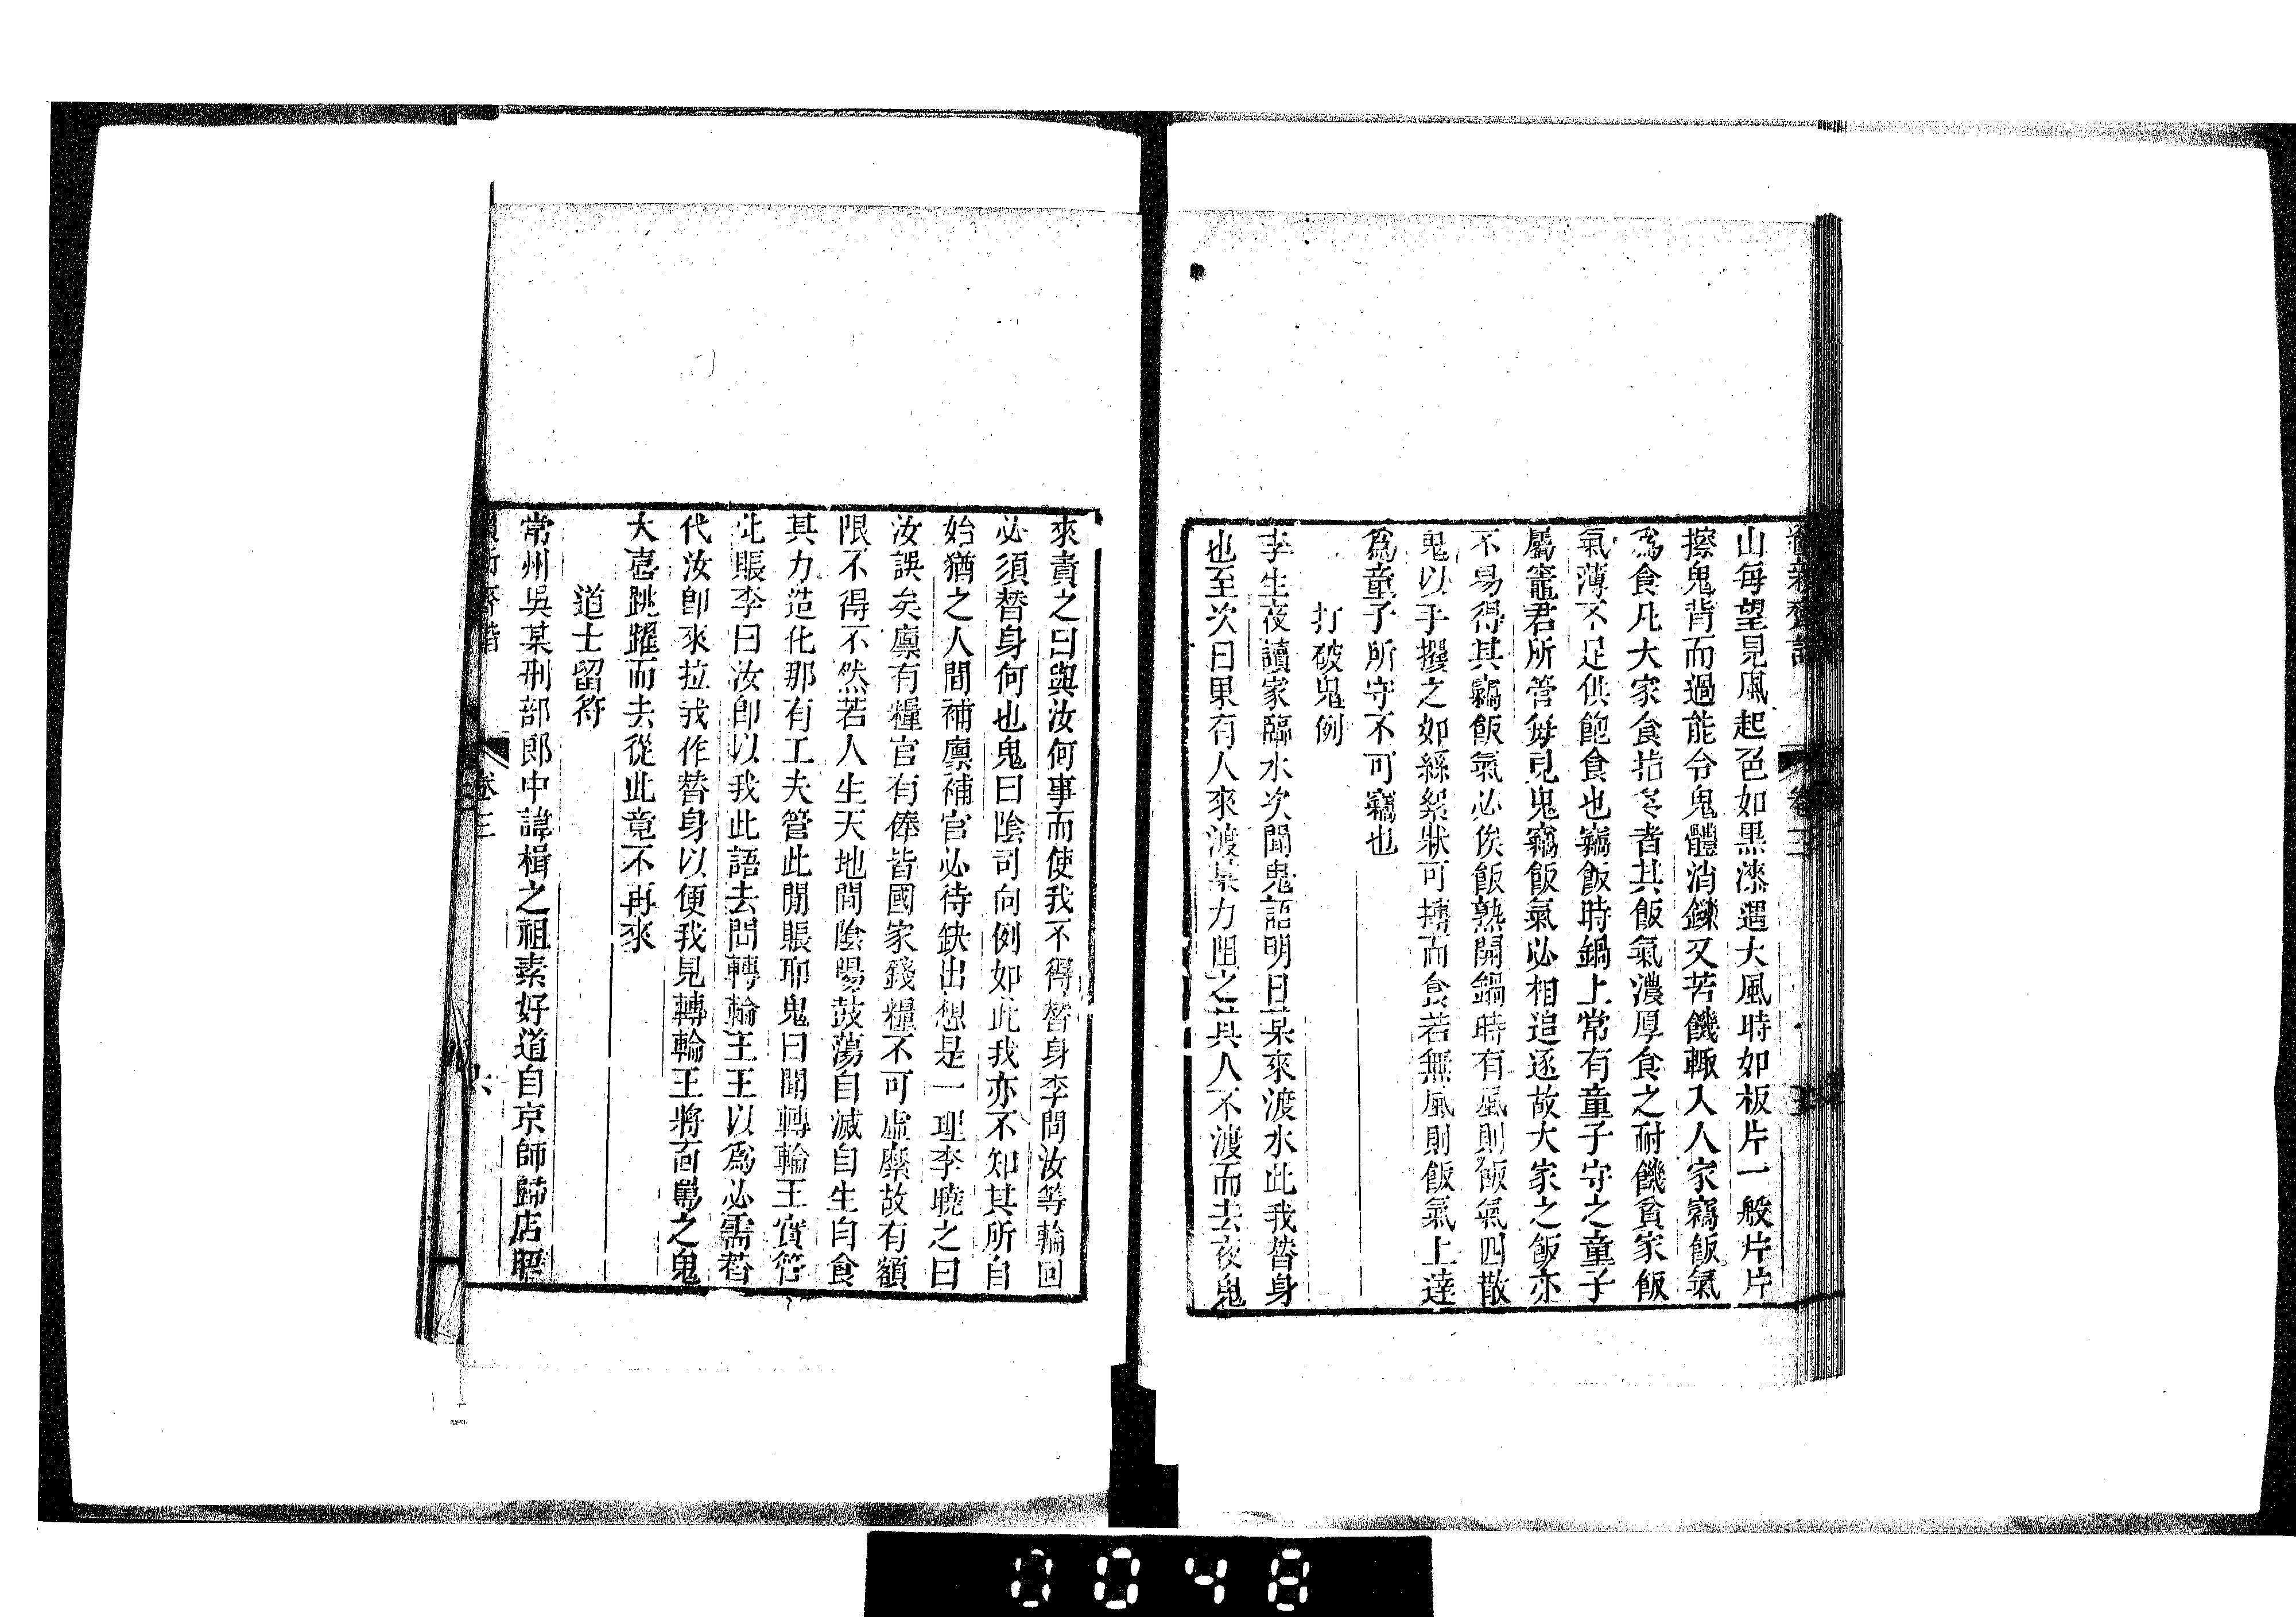 續新齊諧 卷三 五
山每望見風起色如黑漆遇大風時如板片一般片片
擦鬼背而過能令鬼體消鑠又苦饑輙入人家竊飯氣
爲食凡大家食指多者其飯氣濃厚食之耐饑貧家飯
氣薄不足供飽食也竊飯時鍋上常有童子守之童子
屬竈君所管每見鬼竊飯氣必相追逐故大家之飯亦
不易得其竊飯氣必俟飯熟開鍋時有風則飯氣四散
鬼以手攫之如綿絮狀可摶而食若無風則飯氣上達
爲童子所守不可竊也
打破鬼例
李生夜讀家臨水次聞鬼語明日某來渡水此我替身
也至次日果有人來渡某力阻之其人不渡而去夜鬼
來責之曰與汝何事而使我不得替身李問汝等輪回
必須替身何也鬼曰陰司向例如此我亦不知其所自
始猶之人間補廪補官必待缺出想是一理李曉之曰
汝誤矣廪有糧官有俸皆國家錢糧不可虛糜故有額
限不得不然若人生天地間陰陽鼓蕩自滅自生自食
其力造化那有工夫管此閒賬耶鬼曰聞轉輪王實管
此賬李曰汝卽以我此語去問轉輪王王以爲必需替
代汝卽來拉我作替身以便我見轉輪王將面駡之鬼
大喜跳躍而去從此竟不再來
道士留符
常州吳某刑部郎中諱楫之祖素好道自京師歸店曙
續新齊諧 卷三 六
0048